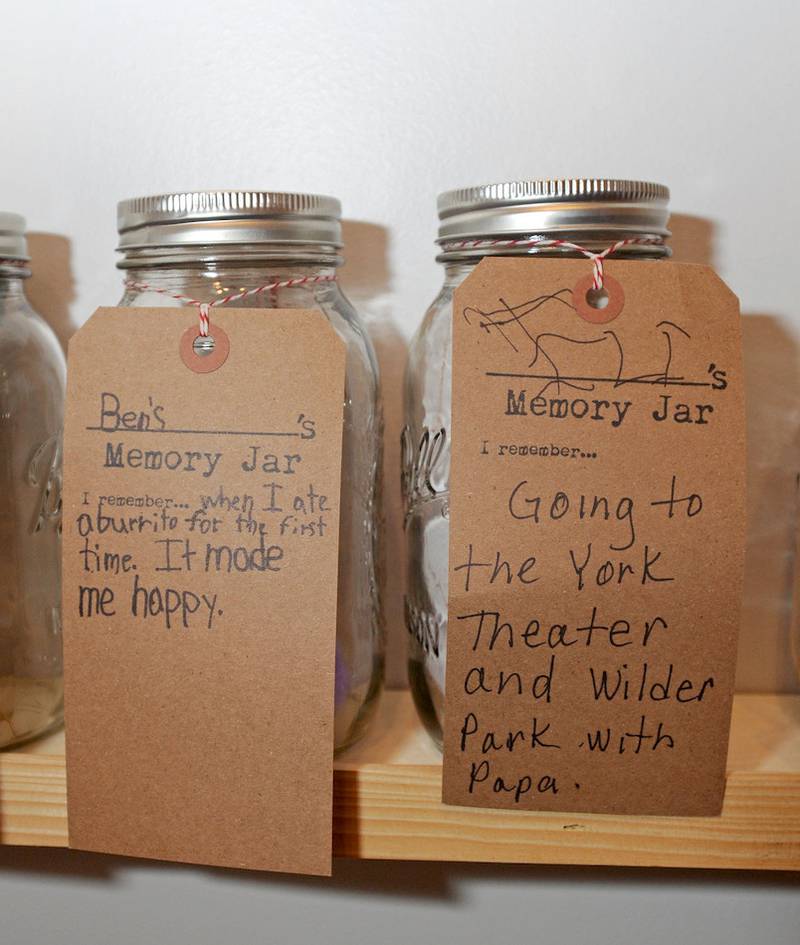 Ben's 's
Memory Jar
I remember... when I ate
a burrito for the first
time. It made
me happy.
's
Memory Jar
I remember...
Going to
the York
Theater
and Wilder
Park with
Papa.